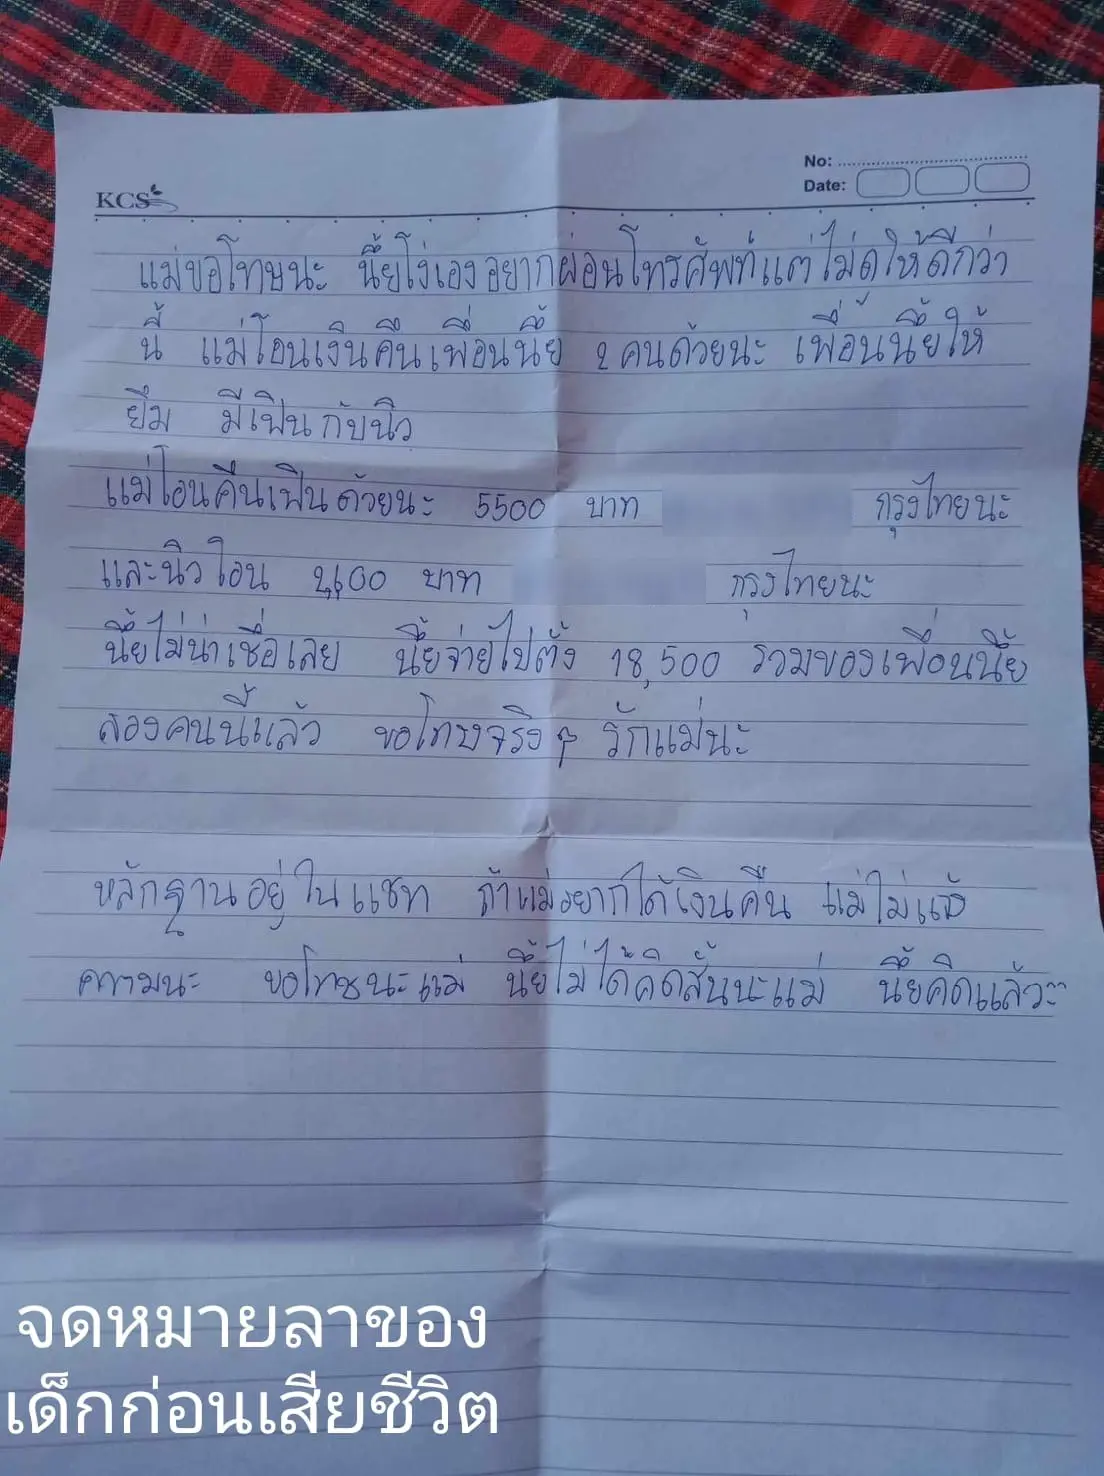 KCS
No:
Date:
แม่ขอโทษนะ นี้ยโง่เองอยากผ่อนโทรศัพท์แต่ไม่ดูให้ดีกว่า
นี้ แม่โอนเงินคืนเพื่อนนี้ย 2 คนด้วยนะ เพื่อนนี้ยให้
ยืม มีเฟินกับนิว
แม่โอนคืนเฟินด้วยนะ 5500 บาท กรุงไทยนะ
และนิวโอน บาท กรุงไทยนะ
นี้ยไม่น่าเชื่อเลย นี้ยจ่ายไปตั้ง 18,500 รวมของเพื่อนนี้ย
สองคนนี้แล้ว ขอโทษจริงๆ รักแม่นะ
หลักฐานอยู่ในแชท ถ้าแม่อยากได้เงินคืน แม่ไปแจ้
ความนะ ขอโทษนะแม่ นี้ยไม่ได้คิดสั้นนะแม่ นี้ยคิดแล้ว
จดหมายลาของ
เด็กก่อนเสียชีวิต